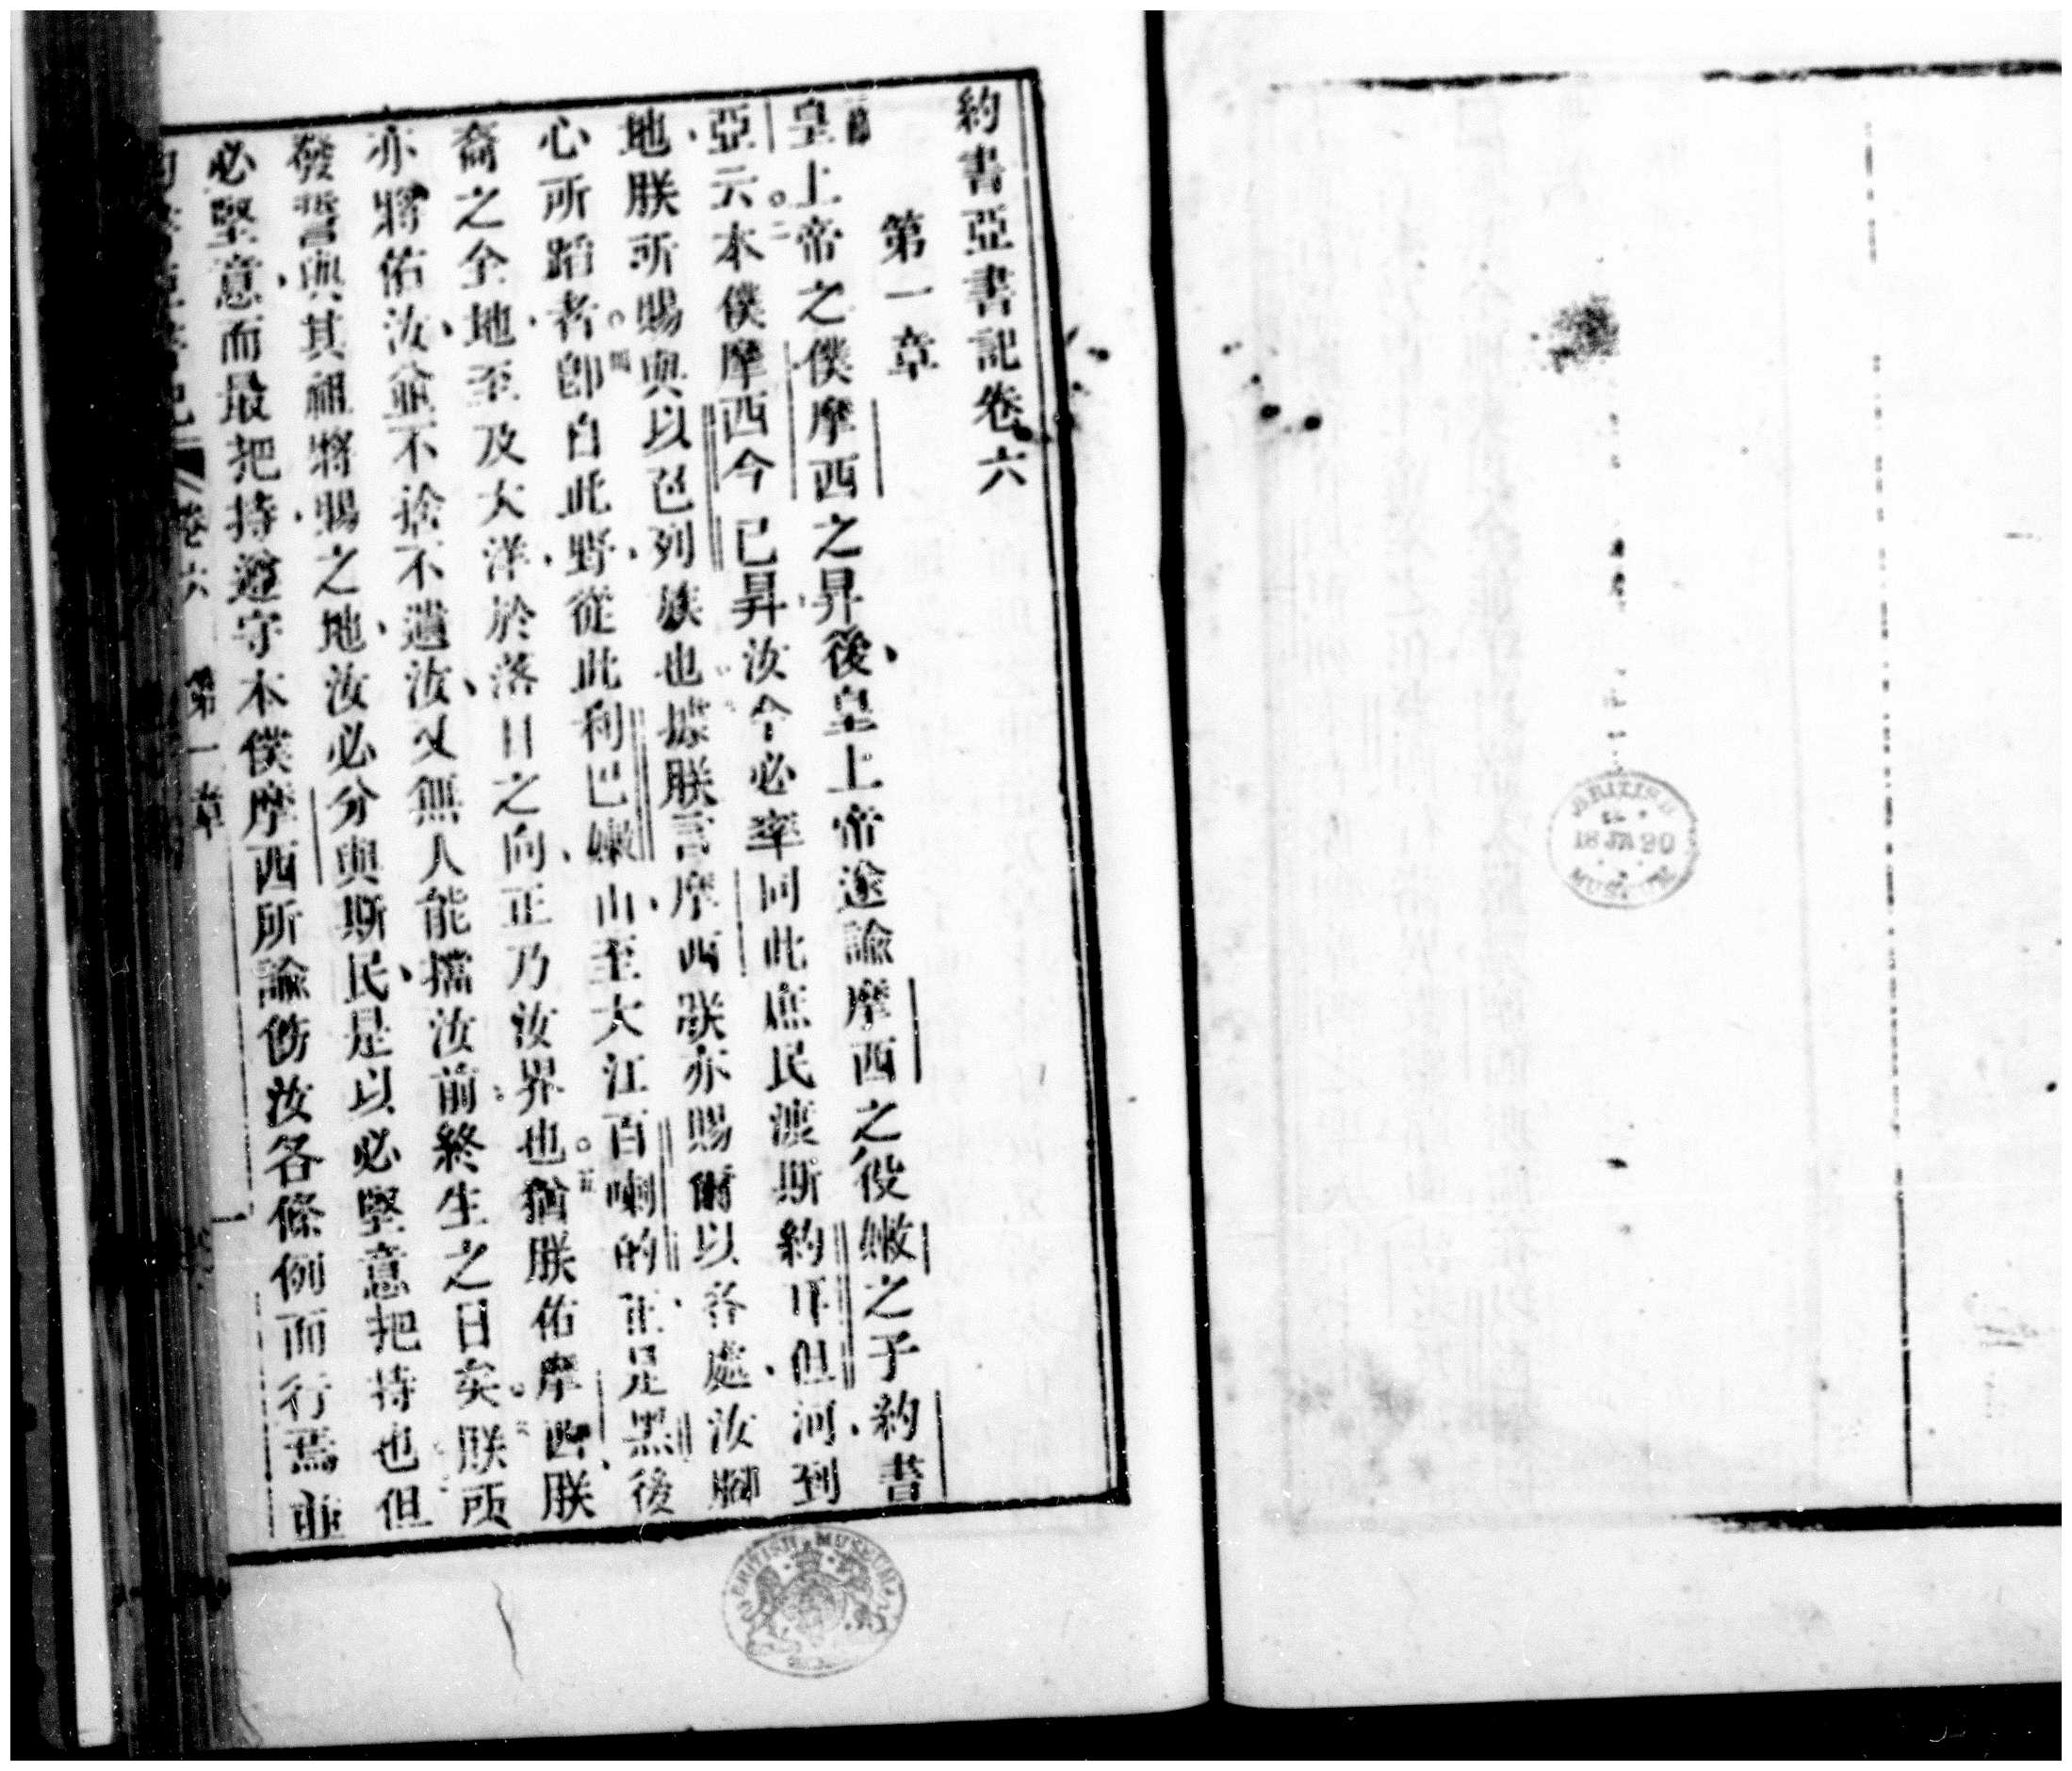 約書亞書記卷六
第一章
一節皇上帝之僕摩西之昇後、皇上帝遂諭摩西之役嫩之子約書
亞云。二本僕摩西今已昇、汝今必率同此庶民渡斯約耳但河、到
地、朕所賜與以色列族也。據朕言摩西、朕亦賜爾以各處、汝腳
心所蹈者。四卽自此野、從此利巴嫩山、至大江百喇的、正是黑後
裔之全地、至及大洋、於落日之向、正乃汝界也。五猶朕佑摩西、朕
亦將佑汝、並不捨不遺汝、又無人能擋汝前終生之日矣。朕所
發誓與其祖將賜之地、汝必分與斯民、是以必堅意把持也。但
必堅意、而最把持、遵守本僕摩西所諭飭汝各條例而行焉、並
卷六 第一章 一
BRITISH MUSEUM
BRITISH MUSEUM
18 JA 90